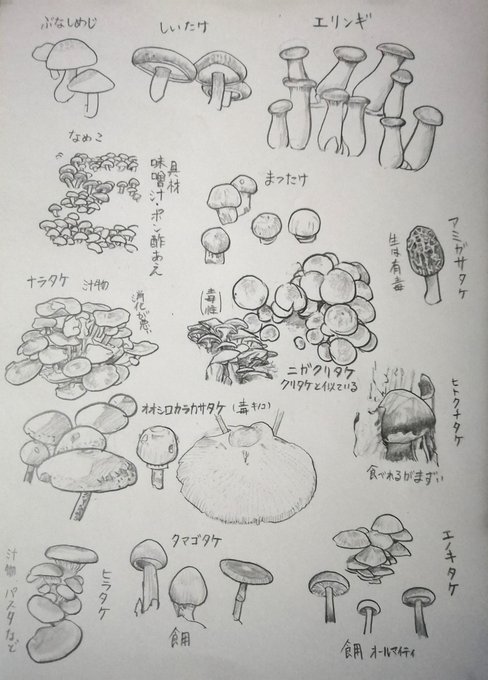 ぶなしめじ
しいたけ
エリンギ
なめこ
具材
味噌汁・ポン酢あえ
まつたけ
アミガサタケ
生は有毒
ナラタケ 汁物
消化が悪い
(毒性)
ニガクリタケ
クリタケと似ている
オオシロカラカサタケ (毒キノコ)
ヒトクチタケ
食べれるがまずい
ヒラタケ
汁物、パスタなど
タマゴタケ
食用
エノキタケ
食用 オールマイティ